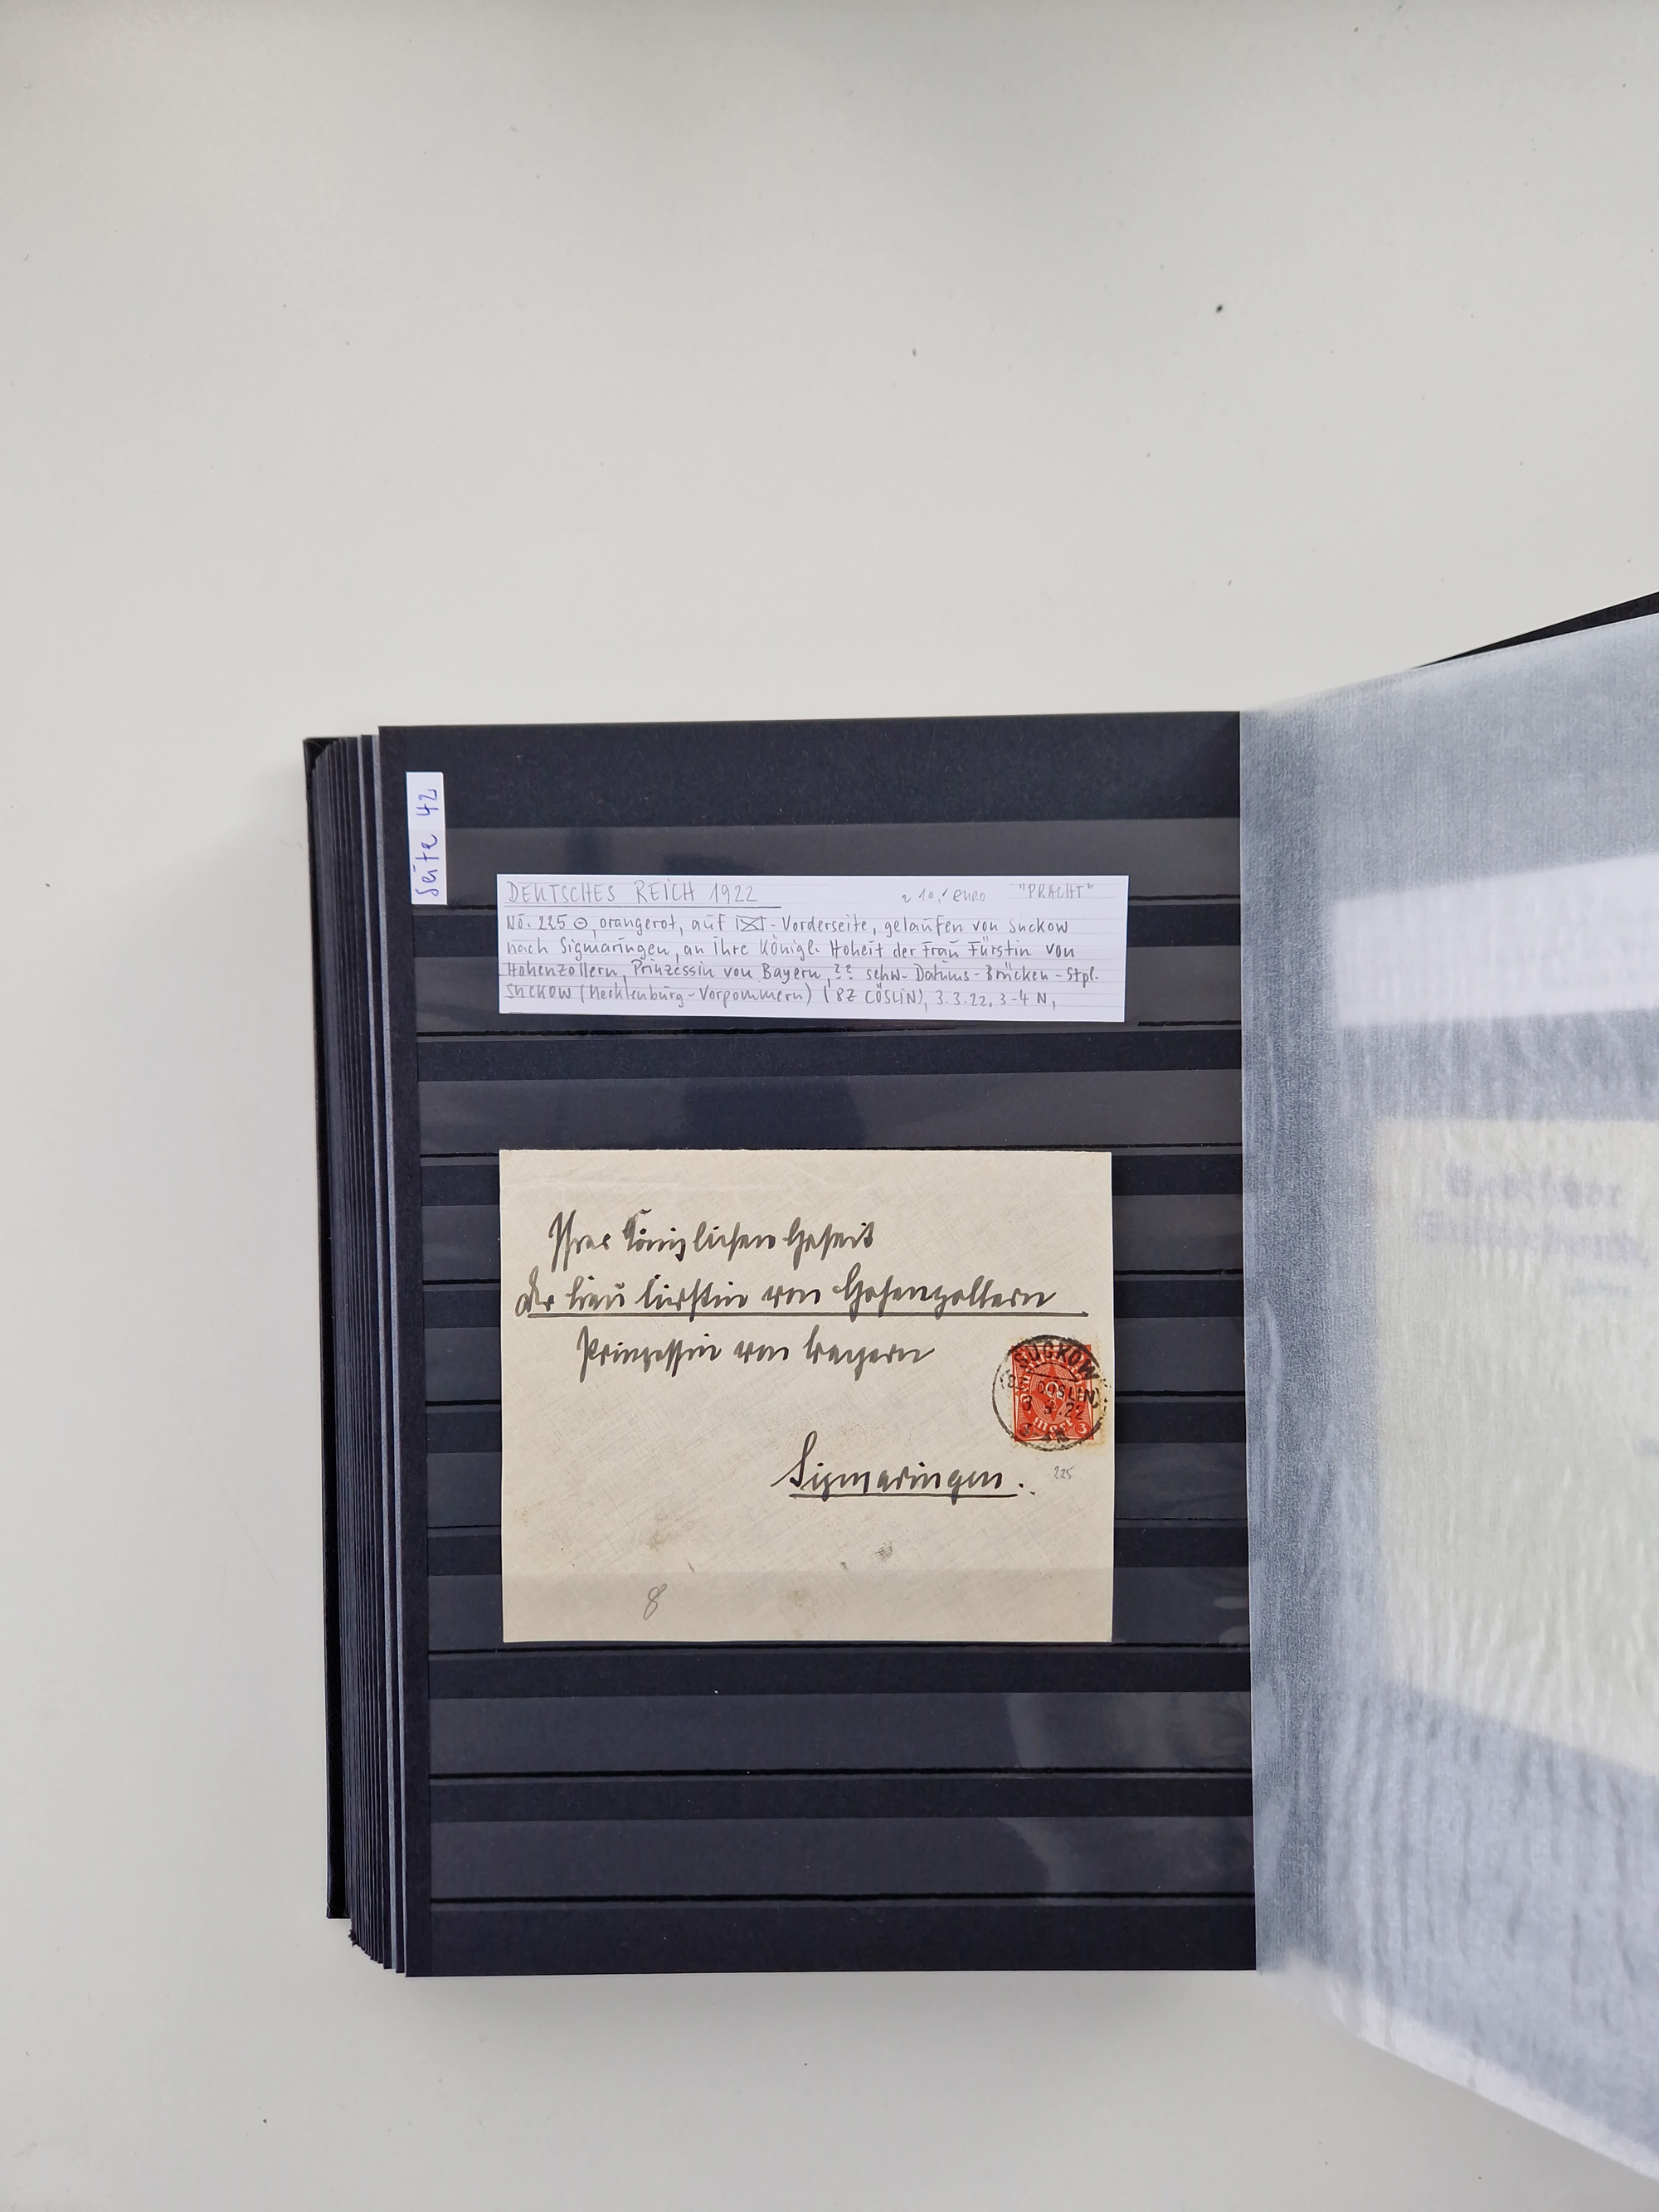 Seite 42
DEUTSCHES REICH 1922 à 10,- EURO "PRACHT"
No. 225 ⊙, orangerot, auf ✉-Vorderseite, gelaufen von Suckow
nach Sigmaringen, an ihre Königl. Hoheit der Frau Fürstin von
Hohenzollern, Prinzessin von Bayern, ?? schw. Datums-Brücken-Stpl.
SUCKOW (Mecklenburg-Vorpommern) (BZ CÖSLIN), 3.3.22, 3-4 N,
Ihrer Königlichen Hoheit
der Frau Fürstin von Hohenzollern
Prinzessin von Bayern
SUCKOW
(BZ CÖSLIN)
3 3.22
3-4 N
Mark 3
Sigmaringen.
225
8